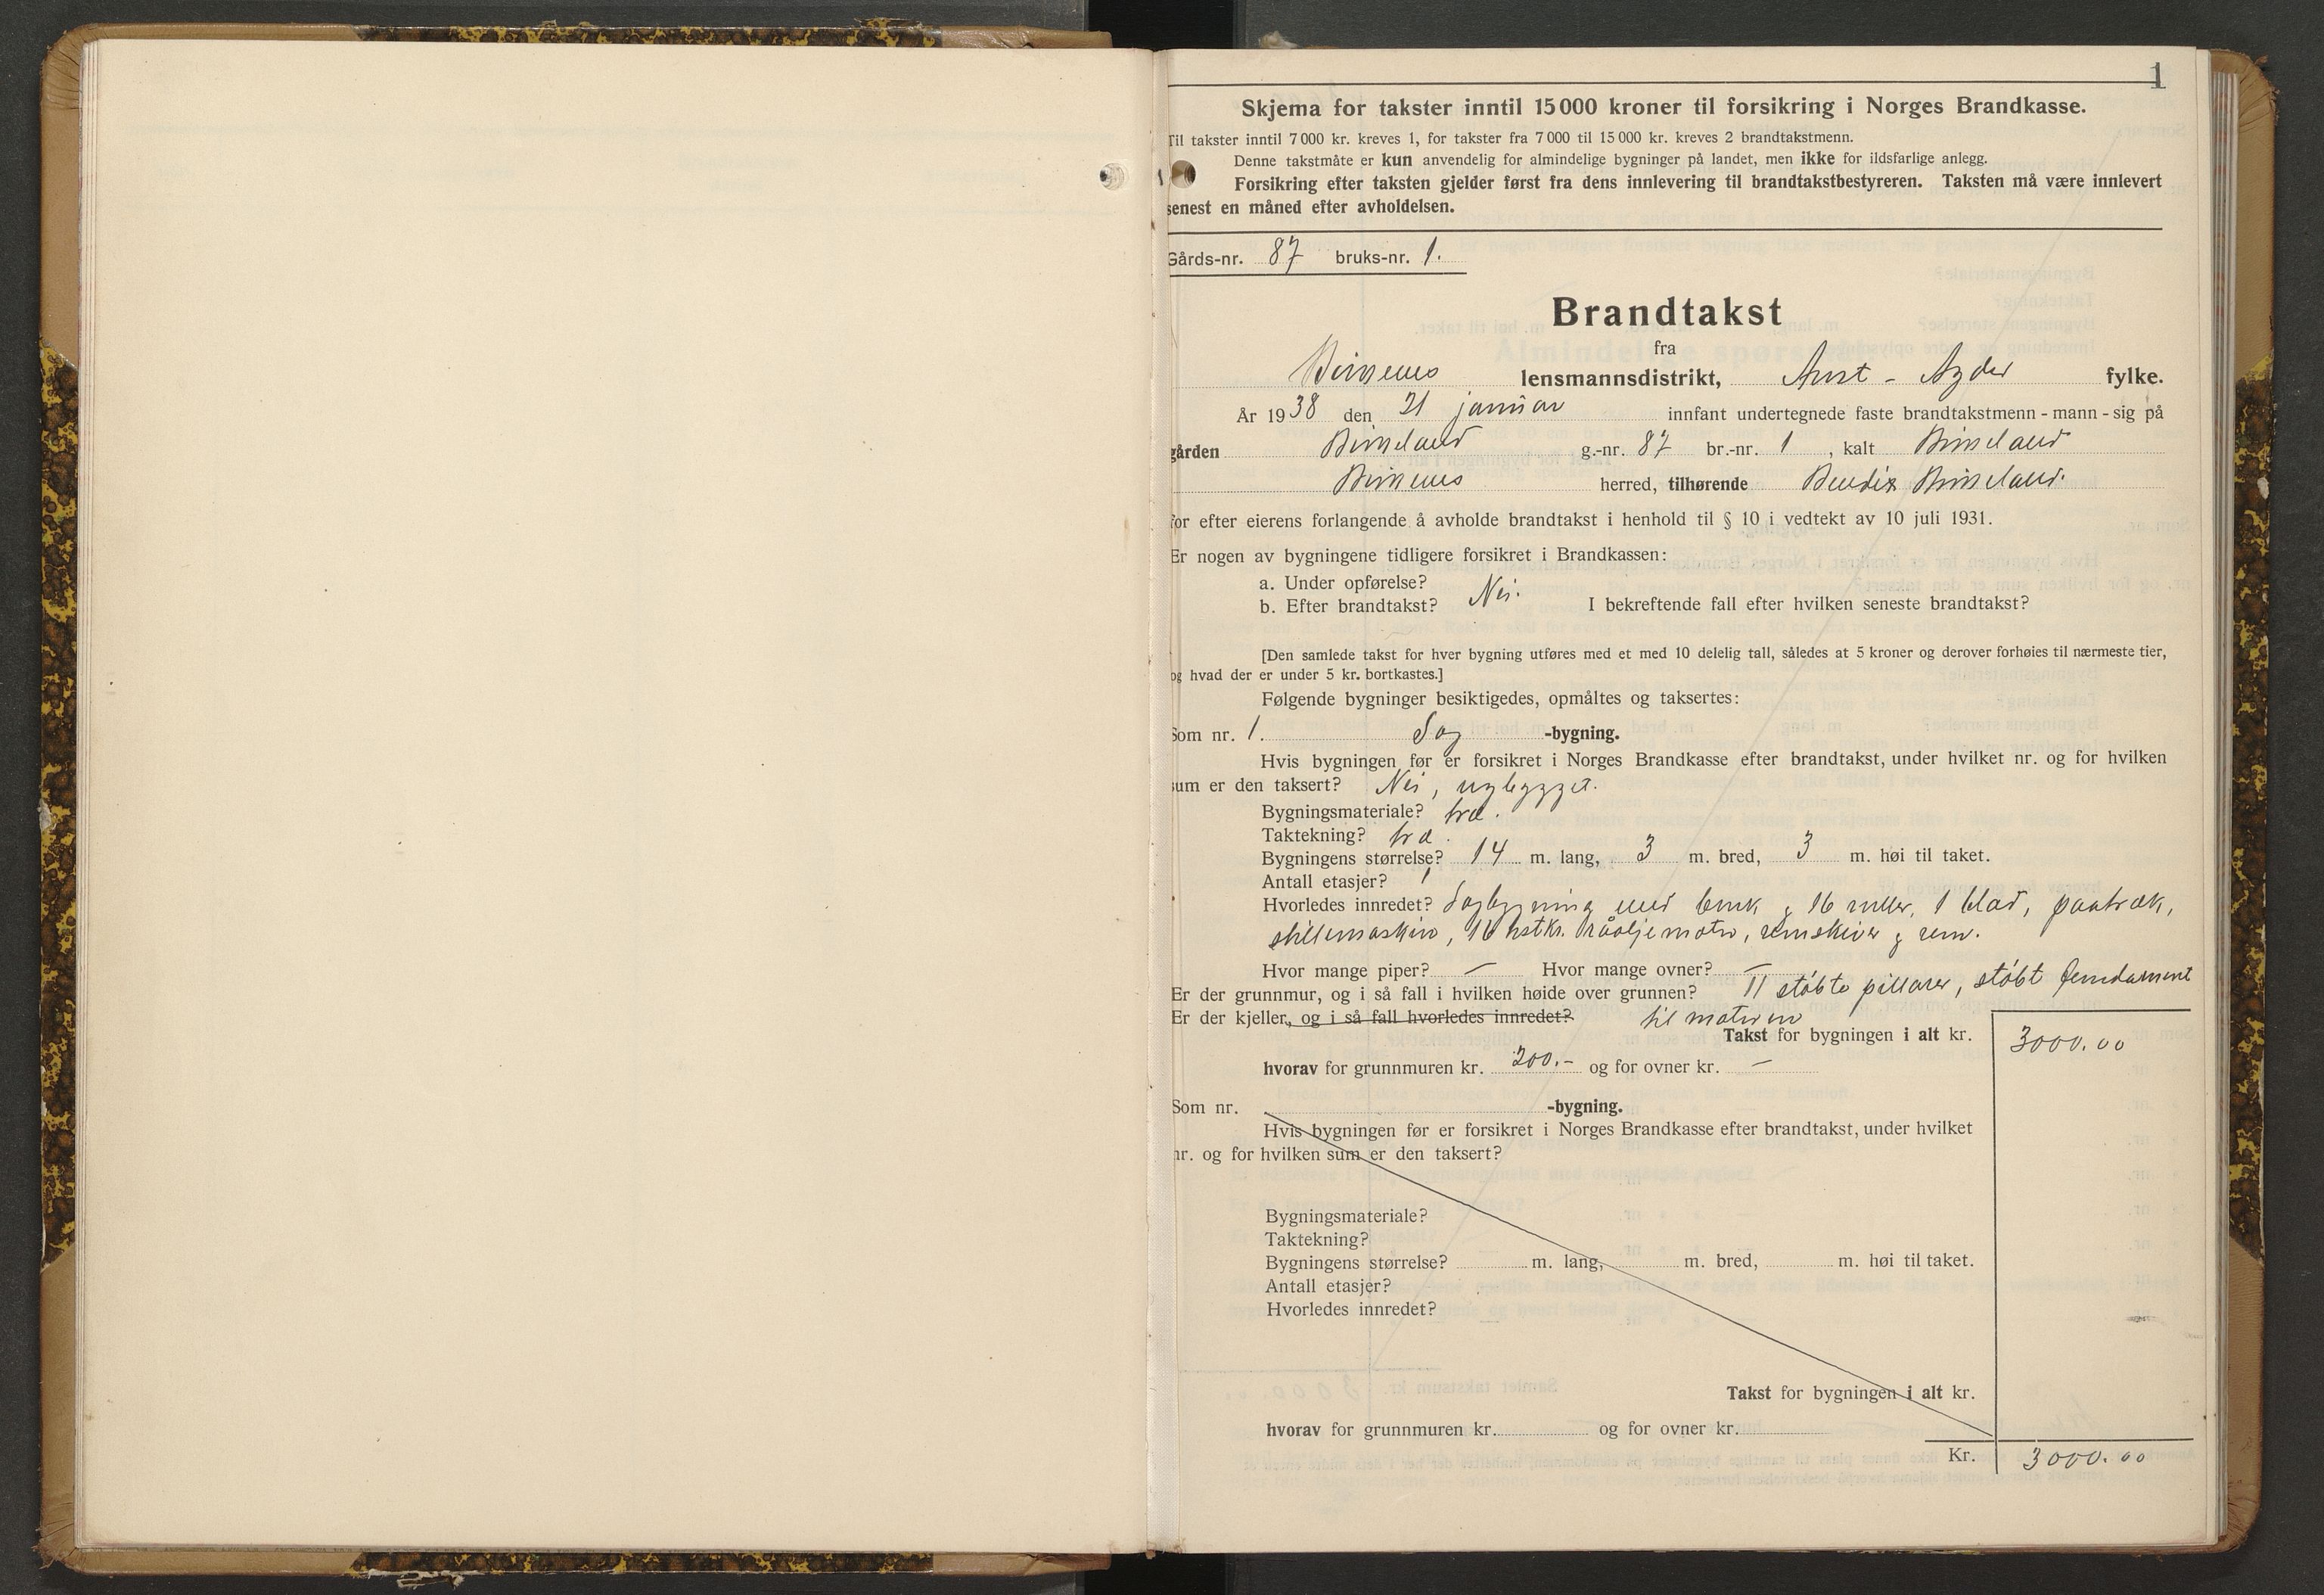 1
Skjema for takster inntil 15 000 kroner til forsikring i Norges Brandkasse.
Til takster inntil 7 000 kr. kreves 1, for takster fra 7 000 til 15 000 kr. kreves 2 brandtakstmenn.
Denne takstmåte er kun anvendelig for almindelige bygninger på landet, men ikke for ildsfarlige anlegg.
Forsikring efter taksten gjelder først fra dens innlevering til brandtakstbestyreren. Taksten må være innlevert
senest en måned efter avholdelsen.
Gårds-nr. 87 bruks-nr. 1.
Brandtakst
fra
Birkenes lensmannsdistrikt, Aust-Agder fylke.
År 1938 den 21 januar innfant undertegnede faste brandtakstmenn - mann - sig på
gården Birkeland g.-nr. 87 br.-nr. 1, kalt Birkeland
Birkenes herred, tilhørende Bendix Birkeland.
for efter eierens forlangende å avholde brandtakst i henhold til § 10 i vedtekt av 10 juli 1931.
Er nogen av bygningene tidligere forsikret i Brandkassen:
a. Under opførelse?
b. Efter brandtakst? Nei. I bekreftende fall efter hvilken seneste brandtakst?
[Den samlede takst for hver bygning utføres med et med 10 delelig tall, således at 5 kroner og derover forhøies til nærmeste tier,
og hvad der er under 5 kr. bortkastes.]
Følgende bygninger besiktigedes, opmåltes og taksertes:
Som nr. 1. Sag -bygning.
Hvis bygningen før er forsikret i Norges Brandkasse efter brandtakst, under hvilket nr. og for hvilken
sum er den taksert? Nei, nybygget.
Bygningsmateriale? træ.
Taktekning? træ.
Bygningens størrelse? 14 m. lang, 3 m. bred, 3 m. høi til taket.
Antall etasjer? 1
Hvorledes innredet? Sagbygning med benk og 16 ruller, 1 blad, paatræk,
stillemaskin, 16 hstkr. råoljemotor, remskiver og rem.
Hvor mange piper? — Hvor mange ovner? —
Er der grunnmur, og i så fall i hvilken høide over grunnen? 11 støbte pillarer, støbt fundament
Er der kjeller, og i så fall hvorledes innredet? til motoren
Takst for bygningen i alt kr. 3000.00
hvorav for grunnmuren kr. 200.- og for ovner kr. —
Som nr. -bygning.
Hvis bygningen før er forsikret i Norges Brandkasse efter brandtakst, under hvilket
nr. og for hvilken sum er den taksert?
Bygningsmateriale?
Taktekning?
Bygningens størrelse? m. lang, m. bred, m. høi til taket.
Antall etasjer?
Hvorledes innredet?
Takst for bygningen i alt kr.
hvorav for grunnmuren kr. og for ovner kr.
Kr. 3000.00